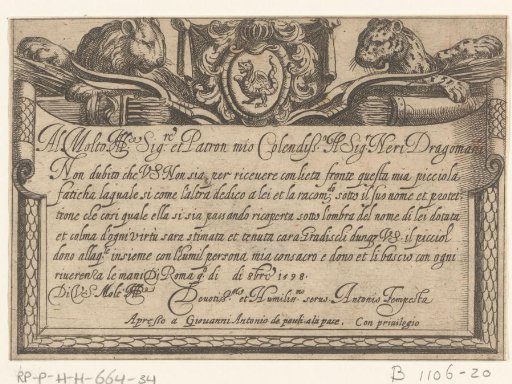 Al Molto Ill.re Sig.re et Patron mio Colendiss.o Il Sig.r Neri Dragomani
Non dubito che V.S. Non sia per ricevere con lieta fronte questa mia picciola
faticha laquale si come l'altra dedico a lei et la racom.o sotto il suo nome et protet-
tione cle cosi quale ella si sia passando ricoperta sotto lombra del nome di lei dotata
et colma dogni virtù sara stimata et tenuta cara Gradischi dunq3 V.S. il picciol
dono allag.a insieme con l'humil persona mia consacro e dono et li bascio con ogni
riverenza le mani Di Roma q.o di di 8bre 1598.
Di V.S. Molt. Ill.re
Devotiss.mo et Humiliss.mo servo. Antonio Tempesta
Apresso a Giovanni Antonio de pauli ala pace. Con privilegio
RP-P-H-H-664-34
B 1106-20